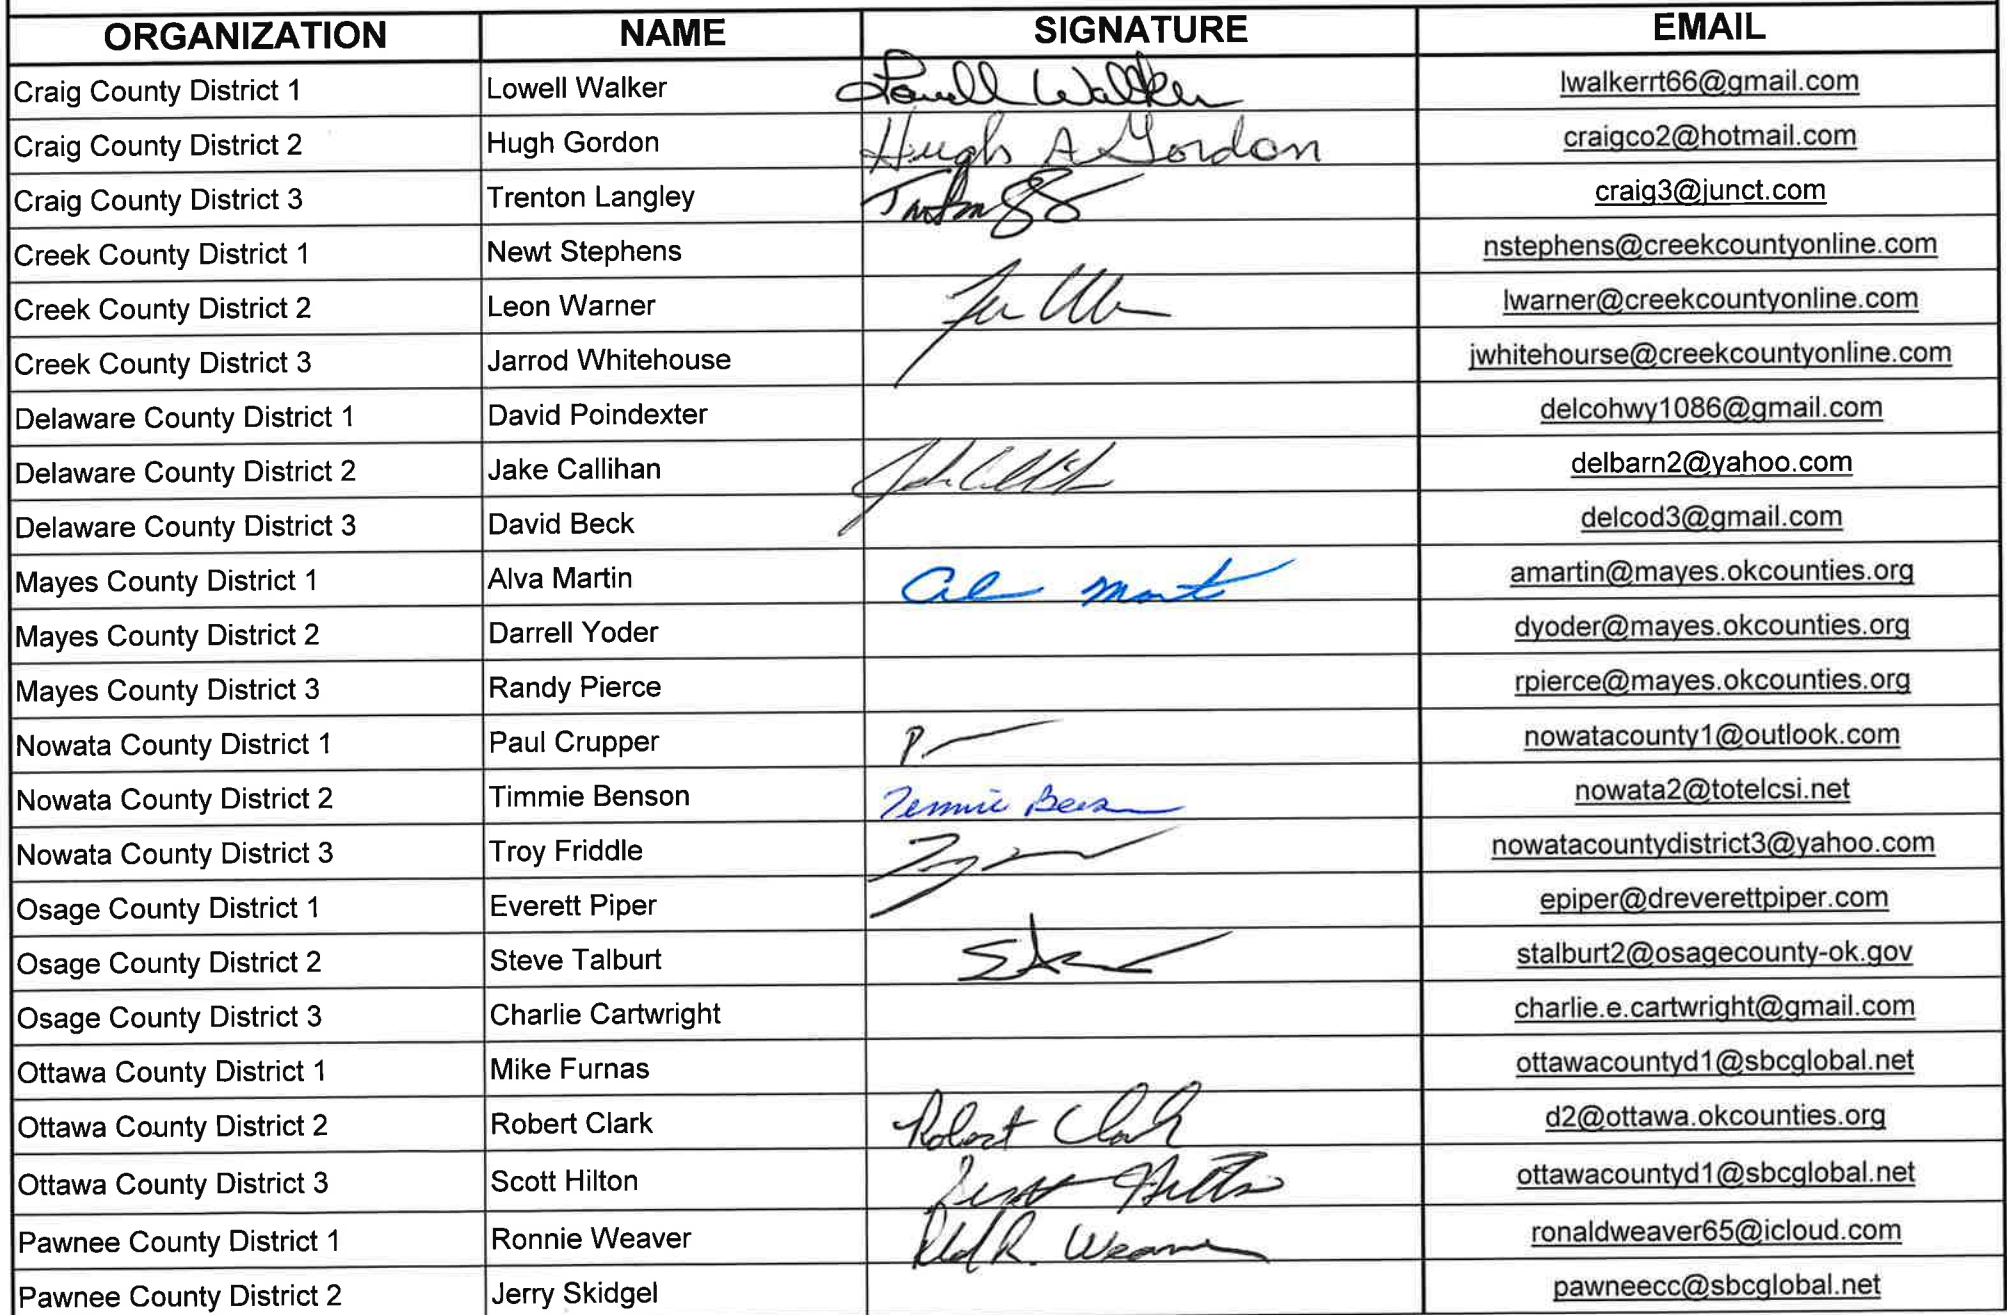 ORGANIZATION NAME SIGNATURE EMAIL
Craig County District 1 Lowell Walker Lowell Walker lwalkerrt66@gmail.com
Craig County District 2 Hugh Gordon Hugh A Gordon craigco2@hotmail.com
Craig County District 3 Trenton Langley craig3@junct.com
Creek County District 1 Newt Stephens nstephens@creekcountyonline.com
Creek County District 2 Leon Warner lwarner@creekcountyonline.com
Creek County District 3 Jarrod Whitehouse jwhitehourse@creekcountyonline.com
Delaware County District 1 David Poindexter delcohwy1086@gmail.com
Delaware County District 2 Jake Callihan delbarn2@yahoo.com
Delaware County District 3 David Beck delcod3@gmail.com
Mayes County District 1 Alva Martin amartin@mayes.okcounties.org
Mayes County District 2 Darrell Yoder dyoder@mayes.okcounties.org
Mayes County District 3 Randy Pierce rpierce@mayes.okcounties.org
Nowata County District 1 Paul Crupper nowatacounty1@outlook.com
Nowata County District 2 Timmie Benson nowata2@totelcsi.net
Nowata County District 3 Troy Friddle nowatacountydistrict3@yahoo.com
Osage County District 1 Everett Piper epiper@dreverettpiper.com
Osage County District 2 Steve Talburt stalburt2@osagecounty-ok.gov
Osage County District 3 Charlie Cartwright charlie.e.cartwright@gmail.com
Ottawa County District 1 Mike Furnas ottawacountyd1@sbcglobal.net
Ottawa County District 2 Robert Clark Robert Clark d2@ottawa.okcounties.org
Ottawa County District 3 Scott Hilton Scott Hilton ottawacountyd1@sbcglobal.net
Pawnee County District 1 Ronnie Weaver R. Weaver ronaldweaver65@icloud.com
Pawnee County District 2 Jerry Skidgel pawneecc@sbcglobal.net